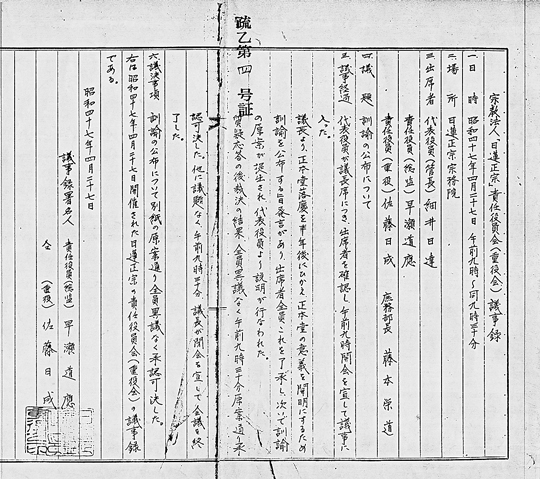 疏乙第四号証
宗教法人「日蓮正宗」責任役員会(重役会)議事録
一日時 昭和四十七年四月二十七日 午前九時〜同九時三十分
二場所 日蓮正宗宗務院
三出席者 代表役員(管長)細井日達
責任役員(総監)早瀬道應
責任役員(重役)佐藤日成 庶務部長 藤本栄道
四議題 訓諭の公布について
五議事経過 代表役員が議長席につき、出席者を確認し午前九時開会を宣して議事に
入った。
議長より、正本堂落慶を半年後にひかえ正本堂の意義を闡明にするため
訓諭を公布する旨発言があり、出席者全員これを了承し、次いで訓諭
の原案が提出され、代表役員より説明が行なわれた。
質疑応答の後裁決の結果、全員異議なく午前九時三十分原案通り承
認可決した。他に議題なく午前九時三十分 議長が閉会を宣して会議を終
了した。
六議決事項 訓諭の公布について別紙の原案通り全員異議なく承認可決した。
右は昭和四十七年四月二十七日開催された日蓮正宗の責任役員会(重役会)の議事録
である。
昭和四十七年四月二十七日
議事録署名人 責任役員(総監)早瀬道應
仝 (重役)佐藤日成